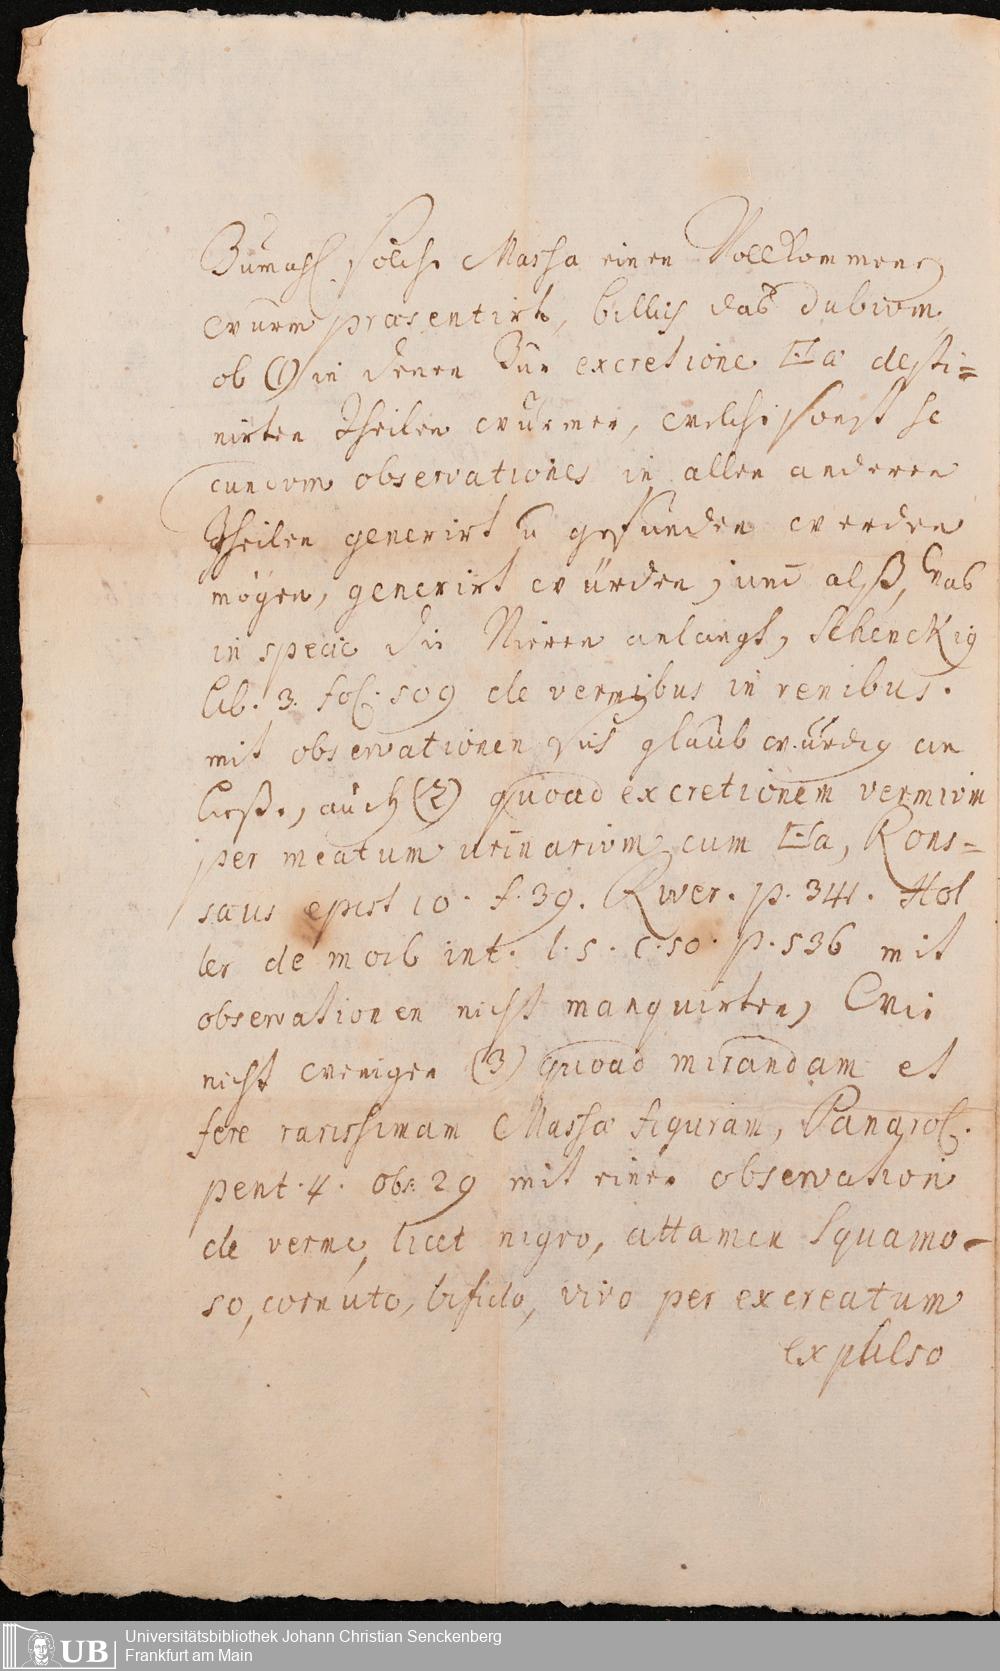 Zumahl solche Massa einen Vollkommenen
wurm præsentirt, billich das dubium,
ob (1) in denen Zur excretione □a desti=
nirten Theilen würmer, welche sonst se
cundum observationes in allen anderen
Theilen generirt u gefunden werden
mögen, generirt würden, und alß, was
in specie die Nieren anlangt, Schenckig
lib. 3. fol. 509 de vermibus in renibus.
mit observationen sich glaubwürdig an
ließe, auch (2) quoad excretionem vermium
per meatum urinarium cum □a, Rons=
sæus epist 10. f. 39. River. p. 341. Hol
ler de morb int. l. 5. c. 50. p. 536 mit
observationen nicht manquirten, Wie
nicht weniger (3) quoad mirandam et
fere rarissimam Massæ figuram, Panarol.
pent. 4. obs. 29 mit einer observation
de verme, licet nigro, attamen squamo-
so, cornuto, bifido, vivo per excreatum
expulso
UB Universitätsbibliothek Johann Christian Senckenberg
Frankfurt am Main